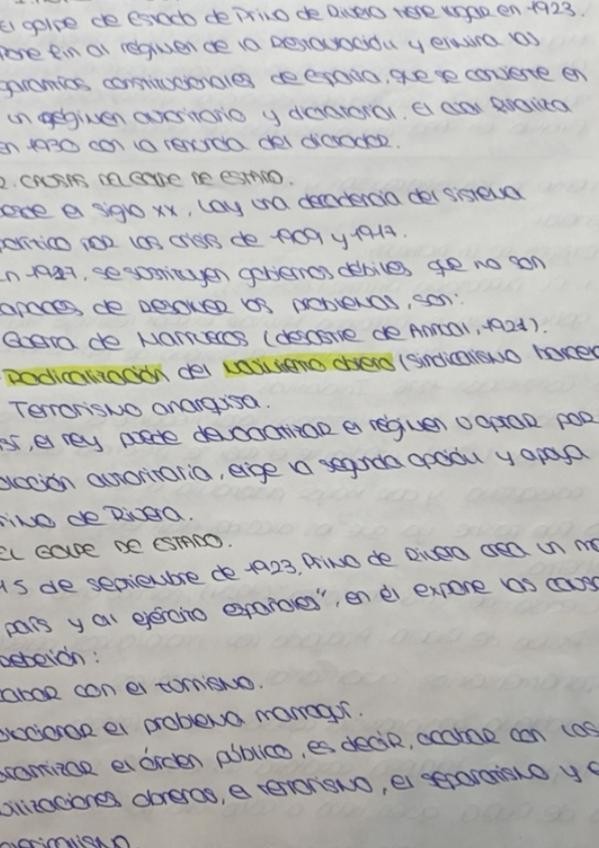 El golpe de Estado de Primo de Rivera tiene lugar en 1923.
Pone fin al régimen de la Restauración y elimina las
garantías constitucionales de España, que se convierte en
un régimen autoritario y dictatorial. El cual finaliza
en 1930 con la renuncia del dictador.
2. CAUSAS DEL GOLPE DE ESTADO.
el siglo XX, hay una decadencia del sistema
político por las crisis de 1909 y 1917.
En se sustituyen gobiernos débiles que no son
capaces de resolver los problemas, son:
Guerra de Marruecos (desastre de Annual, 1921).
Radicalización del movimiento obrero (sindicalismo
Terrorismo anarquista.
el rey puede democratizar el régimen u optar por
autoritaria, elige la segunda opción y apoya
Primo de Rivera.
EL GOLPE DE ESTADO.
de septiembre de 1923, Primo de Rivera crea un
país y al ejército españoles", en él expone las
rebelión:
acabar con el turnismo.
el problema marroquí.
garantizar el órden público, es decir, acabar con las
movilizaciones obreras, el terrorismo, el separatismo y